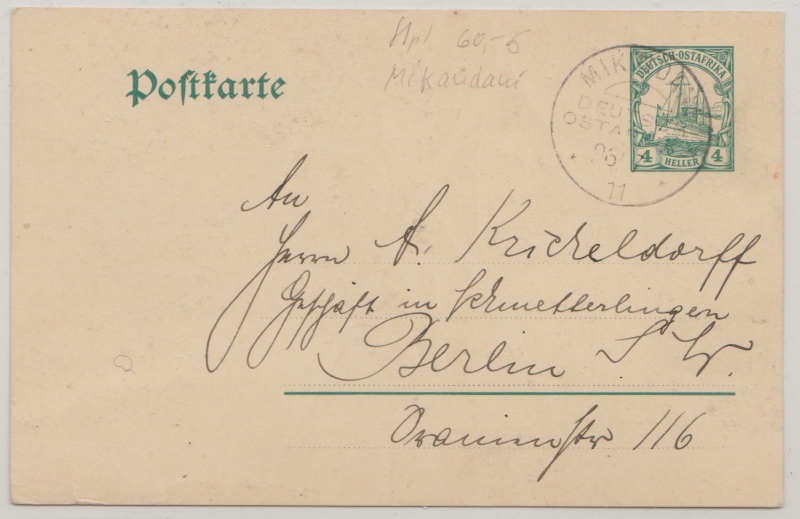 Stpl 60,-
Mikindani
Postkarte
DEUTSCH-OSTAFRIKA
4 HELLER 4
MIKINDANI
DEUTSCH
OSTAFRIKA
11
An
Herrn A. Kricheldorff
Geschäft in Schmetterlingen
Berlin S.W.
Oranienstr 116